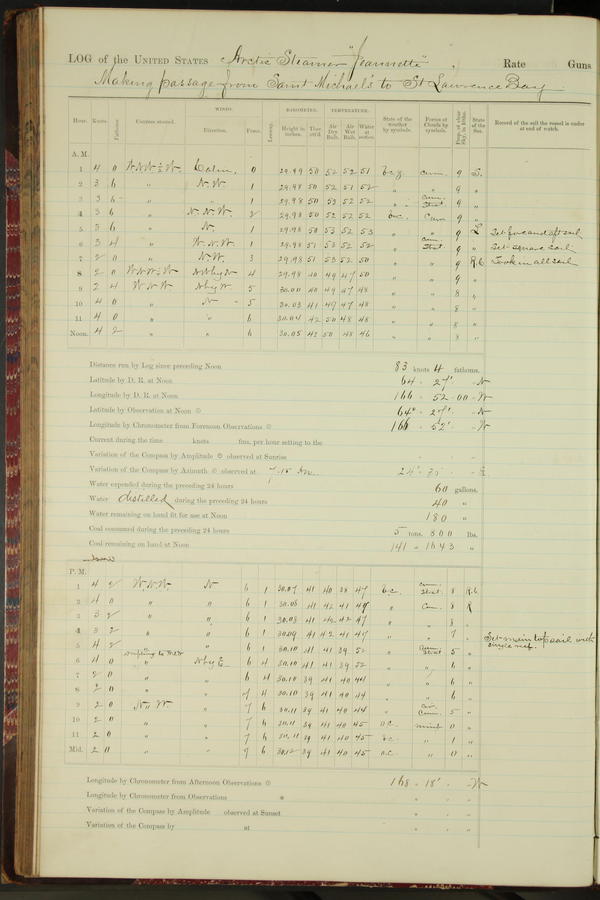 LOG of the UNITED STATES Arctic Steamer "Jeannette", Rate Guns
Making passage from Saint Michael's to St Lawrence Bay
Hour. Knots. Fathoms. Courses steered. WINDS. Direction. Force. Leeway. BAROMETER. Height in inches. Ther. att'd. TEMPERATURE. Air Dry Bulb. Air Wet Bulb. Water at surface. State of the weather by symbols. Forms of Clouds by symbols. Prop. of clear Sky, in 10ths. State of the Sea. Record of the sail the vessel is under at end of watch.
A. M.
1 4 0 Calm, 0 29.99 50 52 52 51 cum. 9 S.
2 3 6 " N.W. 1 29.98 50 52 51 52 " " 9 "
3 3 6 " " 1 29.98 50 53 52 52 " Cum. Strat. 9 "
4 3 6 " N.N.W. 2 29.98 50 52 52 52 b.c. Cum 9 "
5 3 6 " N. 1 29.98 50 53 52 53 " " 9 L Set fore and aft sail
6 3 4 " W.N.W. 1 29.98 51 53 52 52 " Cum. Strat. 9 " Set square sail
7 2 0 " N.W. 3 29.98 51 53 52 50 " " 9 R.6 Took in all sail
8 2 0 4 29.98 40 49 47 50 " " 9 "
9 2 4 W.N.W N by W 5 30.00 40 49 47 48 " " 8 "
10 4 0 " N 5 30.03 41 49 47 48 " " 8 "
11 4 0 " " 6 30.04 42 50 48 48 " " 8 "
Noon. 4 2 " " 6 30.05 42 50 48 46 " " 8 "
Distance run by Log since preceding Noon 83 knots 4 fathoms.
Latitude by D. R. at Noon 64 ° 27' N
Longitude by D. R. at Noon 166 ° 52 00 W
Latitude by Observation at Noon ☉ 64° 27' N
Longitude by Chronometer from Forenoon Observations ☉ 166 ° 52' W
Current during the time knots fms. per hour setting to the
Variation of the Compass by Amplitude ☉ observed at Sunrise
Variation of the Compass by Azimuth ☉ observed at 7.15 Am 24° E
Water expended during the preceding 24 hours 60 gallons.
Water distilled during the preceding 24 hours 40 "
Water remaining on hand fit for use at Noon 180 "
Coal consumed during the preceding 24 hours 5 tons. 800 lbs.
Coal remaining on hand at Noon 141 " 1643 "
P. M.
1 4 2 W.N.W. N 6 1 30.07 41 40 38 47 b.c. cum. Strat. 8 R.6
2 4 0 " " 6 1 30.08 41 42 41 " Cum. 8 R
3 3 2 " " 6 1 30.08 41 42 42 47 " " 8 "
4 3 2 " " 6 1 30.09 41 42 41 47 " " 7 " Set main topsail with
single reef.
5 4 2 " 6 1 30.10 41 41 39 52 " Cum. Strat 5 "
6 4 0 " N by E 6 4 30.10 41 41 39 52 " " 6 "
7 2 0 " " 6 4 30.10 39 41 40 44 " " 6 "
8 2 0 " " 7 4 30.10 39 41 40 44 " " 6 "
9 2 0 " 7 6 30.11 39 41 40 44 " Cum. 5 "
10 2 0 " " 7 6 30.11 39 41 40 45 o.c. 0 "
11 2 0 " " 7 6 30.11 39 41 40 45 b.c. " 1 "
Mid. 2 0 " " 7 6 30.12 39 41 40 45 o.c. " 0 "
Longitude by Chronometer from Afternoon Observations ☉ 168 ° 18' W
Longitude by Chronometer from Observations
Variation of the Compass by Amplitude observed at Sunset
Variation of the Compass by at